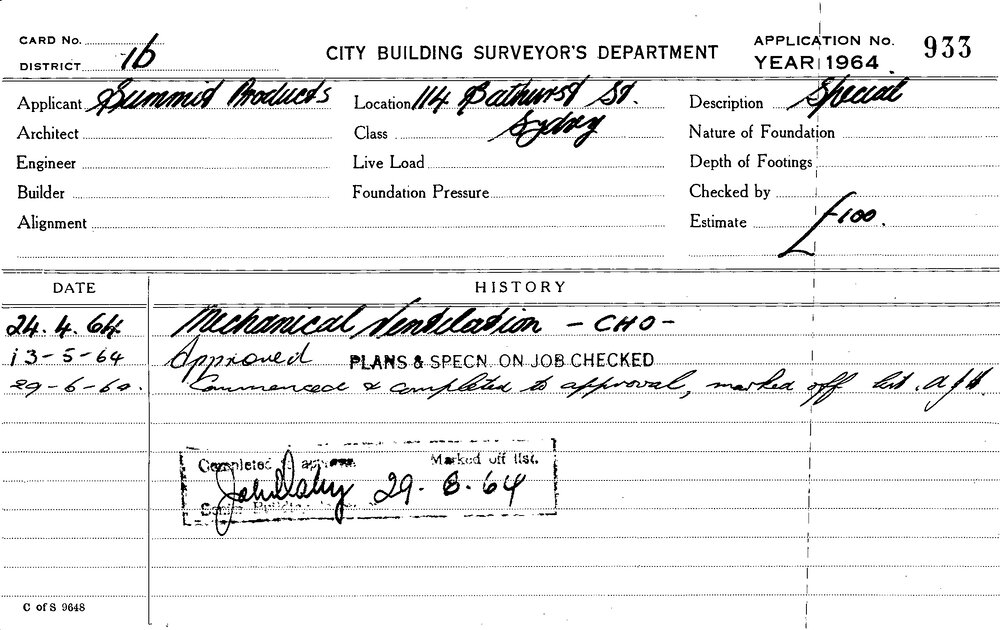 CARD No.
DISTRICT 1b
CITY BUILDING SURVEYOR'S DEPARTMENT
APPLICATION No. 933
YEAR 1964
Applicant Summit Products
Location 114 Bathurst St.
Sydney
Description Special
Architect
Class
Nature of Foundation
Engineer
Live Load
Depth of Footings
Builder
Foundation Pressure
Checked by
Alignment
Estimate £100.
DATE HISTORY
24.4.64 Mechanical Ventilation - CHO -
13-5-64 Approved PLANS & SPECN. ON JOB CHECKED
29-6-64. Commenced & completed to approval, marked off list.
Completed to approval Marked off list.
29-6-64
Senior Building
C of S 9648